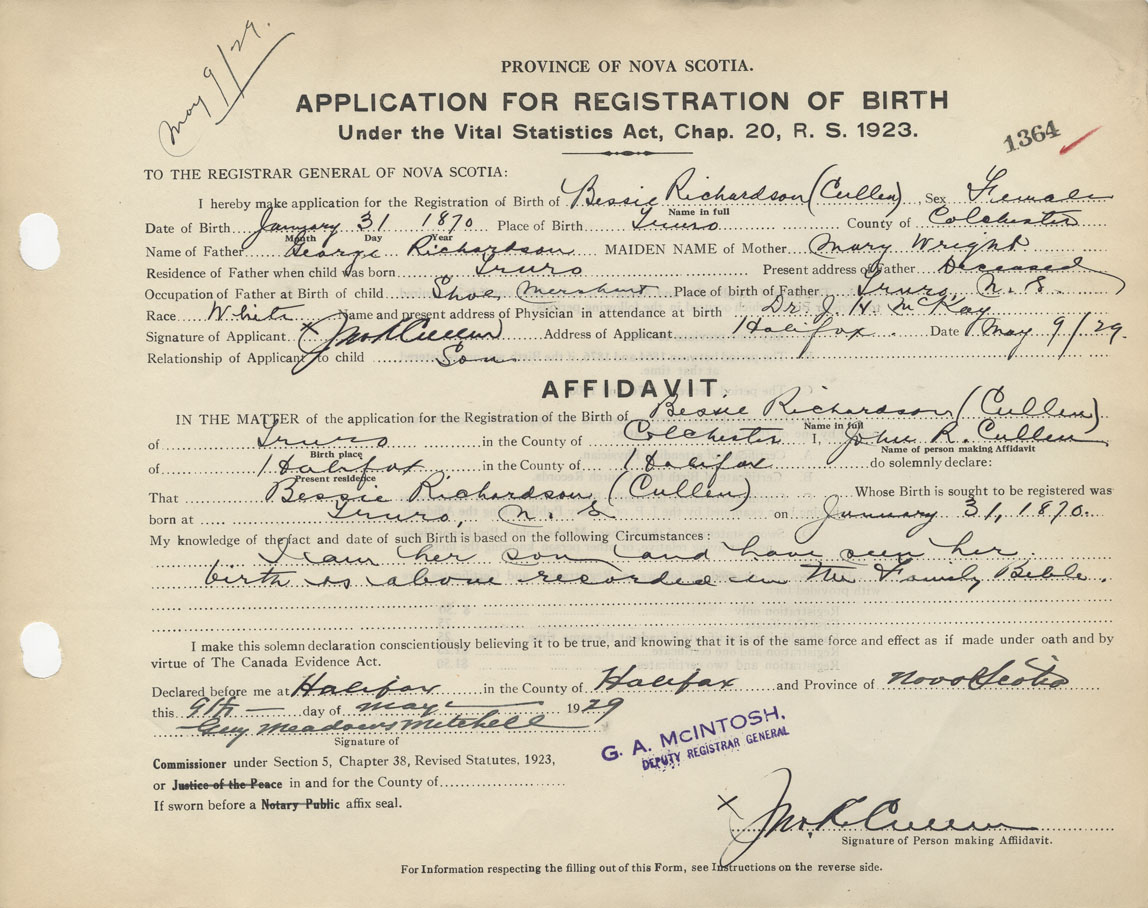 May 9/29.
PROVINCE OF NOVA SCOTIA.
APPLICATION FOR REGISTRATION OF BIRTH
Under the Vital Statistics Act, Chap. 20, R. S. 1923.
1364
TO THE REGISTRAR GENERAL OF NOVA SCOTIA:
I hereby make application for the Registration of Birth of Bessie Richardson (Cullen) Sex Female
Name in full
Date of Birth January 31 1870 Place of Birth Truro County of Colchester
Month Day Year
Name of Father George Richardson MAIDEN NAME of Mother Mary Wright
Residence of Father when child was born Truro Present address of Father Deceased
Occupation of Father at Birth of child Shoe Merchant Place of birth of Father Truro, N. S.
Race White Name and present address of Physician in attendance at birth Dr. J. H. McKay
Signature of Applicant. x Jno R Cullen Address of Applicant Halifax. Date May 9/29.
Relationship of Applicant to child Son
AFFIDAVIT.
IN THE MATTER of the application for the Registration of the Birth of Bessie Richardson (Cullen)
Name in full
of Truro in the County of Colchester I, John R. Cullen
Birth place Name of person making Affidavit
of Halifax in the County of Halifax do solemnly declare:
Present residence
That Bessie Richardson, (Cullen) Whose Birth is sought to be registered was
born at Truro, N. S on January 31, 1870.
My knowledge of the fact and date of such Birth is based on the following Circumstances:
I am her son and have seen her
birth as above recorded in the Family Bible.
I make this solemn declaration conscientiously believing it to be true, and knowing that it is of the same force and effect as if made under oath and by
virtue of The Canada Evidence Act.
Declared before me at Halifax in the County of Halifax and Province of Nova Scotia
this 9th day of may 1929
Guy Meadows Mitchell
Signature of
G. A. McINTOSH,
DEPUTY REGISTRAR GENERAL
Commissioner under Section 5, Chapter 38, Revised Statutes, 1923,
or Justice of the Peace in and for the County of
If sworn before a Notary Public affix seal.
x Jno. R. Cullen
Signature of Person making Affiidavit.
For Information respecting the filling out of this Form, see Instructions on the reverse side.